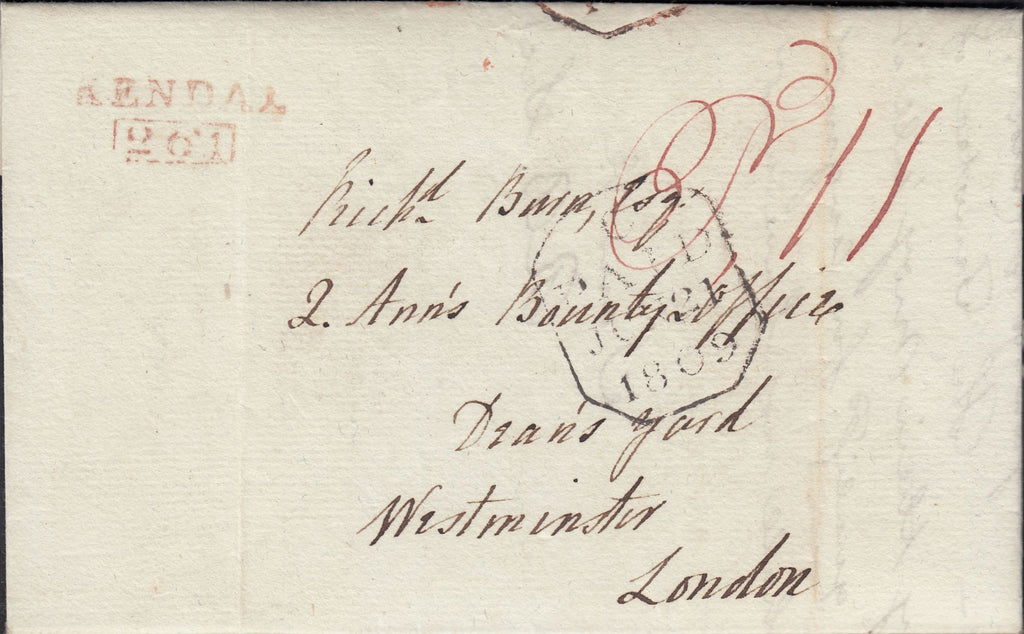 KENDAL
261
Rich.d Burn, Esq.
2. Ann's Bounty Office
Dean's Yard
Westminster
London
C
PAID
21
1809
11